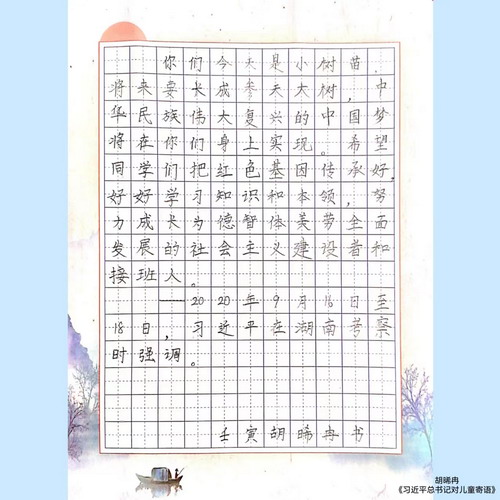 你们今天是小树苗，
将来要长成参天大树，中
华民族伟大复兴的中国梦
将在你们身上实现。希望
同学们把红色基因传承好，
好好学习知识和本领，努
力成长为德智体美劳全面
发展的社会主义建设者和
接班人。
——2020年9月16日至
18日，习近平在湖南考察
时强调。
壬寅胡晞冉书
胡晞冉
《习近平总书记对儿童寄语》